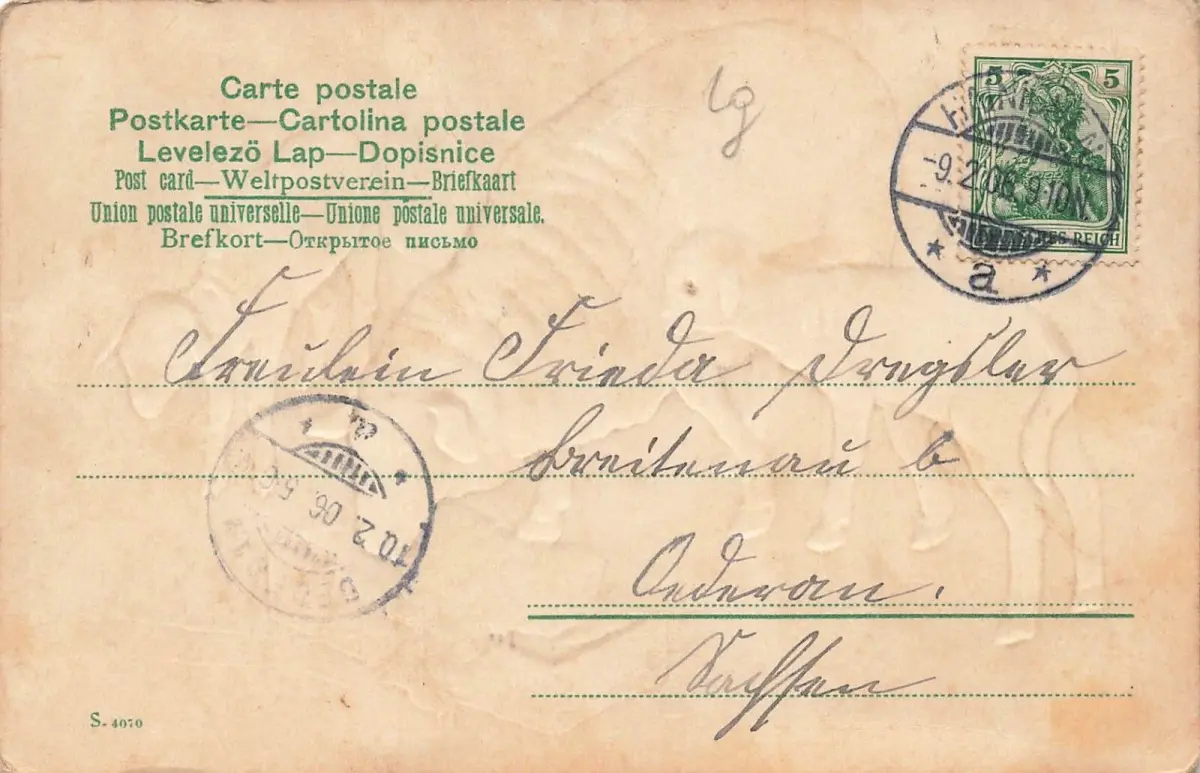 Carte postale
Postkarte—Cartolina postale
Levelező Lap—Dopisnice
Post card—Weltpostverein—Briefkaart
Union postale universelle—Unione postale universale.
Brefkort—Открытое письмо
lg
5 5
-9.2.06. 9-10N.
REICH
a
Freulein Frieda Dregsler
Breitenau b
10.2.06.
Oederan.
Sachsen
S. 4070